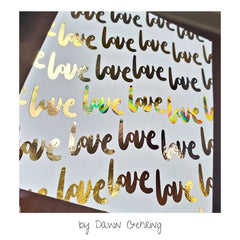 love love love love
love love love love
love love love love
love love love love love
love love love love
love love love love
love love love
by Dawn Gehring